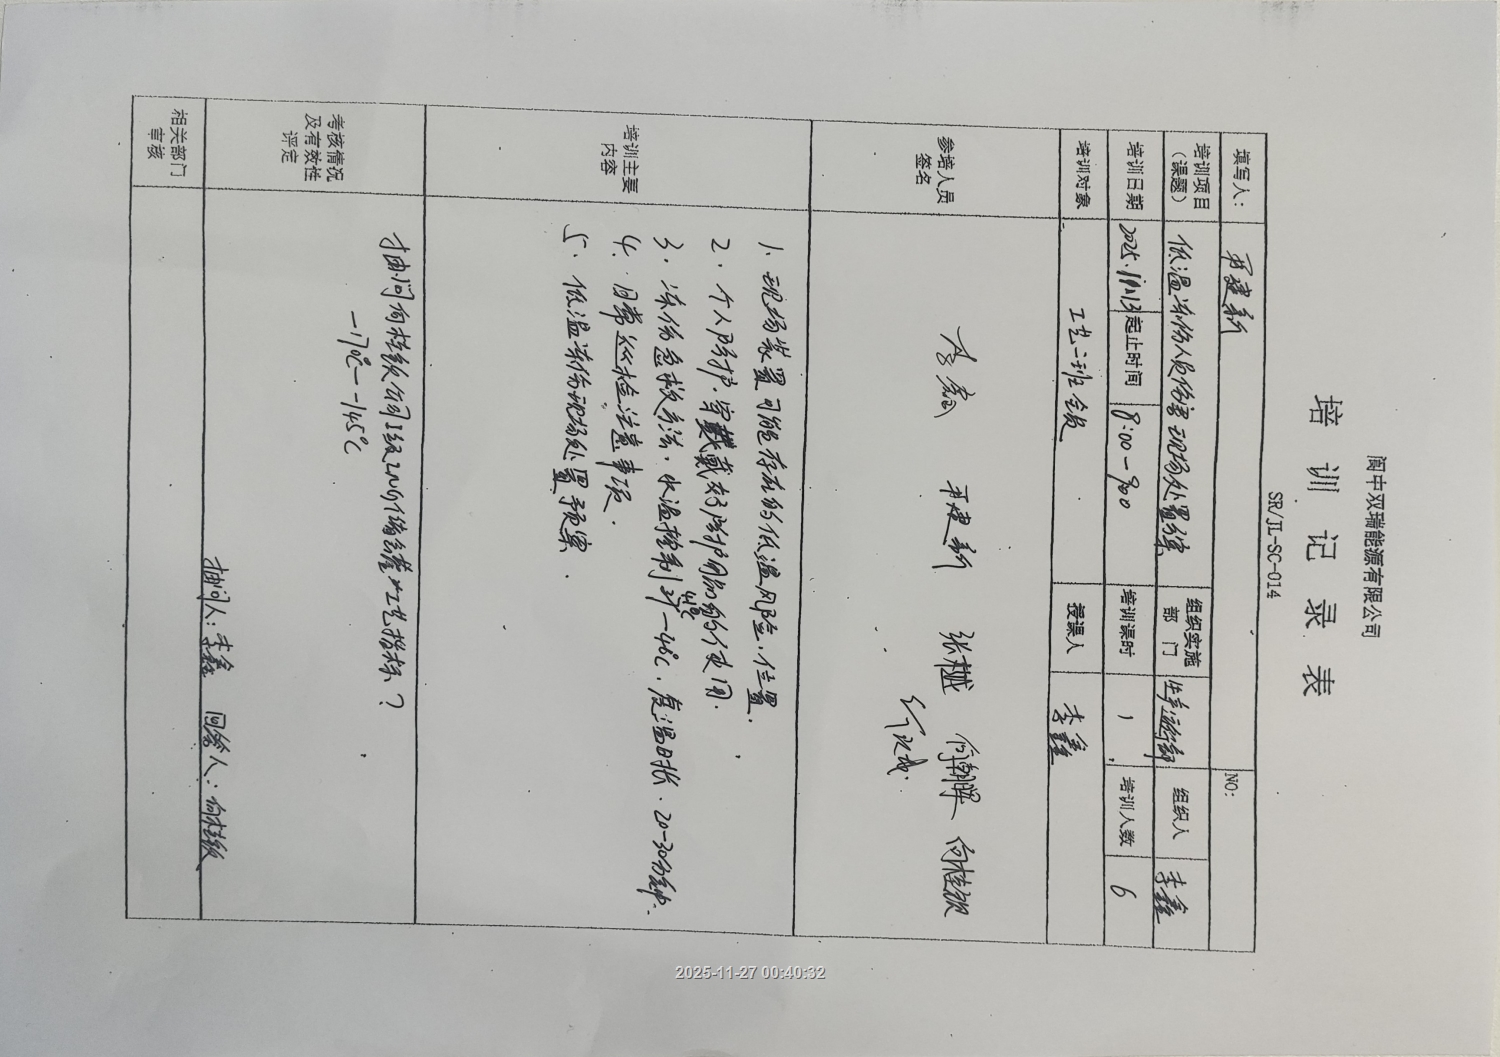 阆中双瑞能源有限公司
培训记录表
SR/JL-SC-014
填写人: 建新 NO:
培训项目（课题） 低温冻伤人员伤害现场处置 组织实施部门 生产运行部 组织人 李鑫
培训日期 2025.11月13 起止时间 8:00-9:00 培训课时 1 培训人数 6
培训对象 工艺一班全员 授课人 李鑫
参培人员签名 李鑫 建新 张樾 何朝晖 向桂钦
培训主要内容
1、现场装置可能存在的低温风险、位置.
2、个人防护、穿戴好防护用品的使用.
3、冻伤急救方法、水温控制 -42℃、复温时长、20-30分钟.
4、日常巡检注意事项.
5、低温冻伤现场处置预案.
考核情况及有效性评定
抽问向桂钦公司1级LNG储罐的工艺指标?
-170℃--145℃
抽问人: 李鑫 回答人: 向桂钦
相关部门审核
2025-11-27 00:40:32